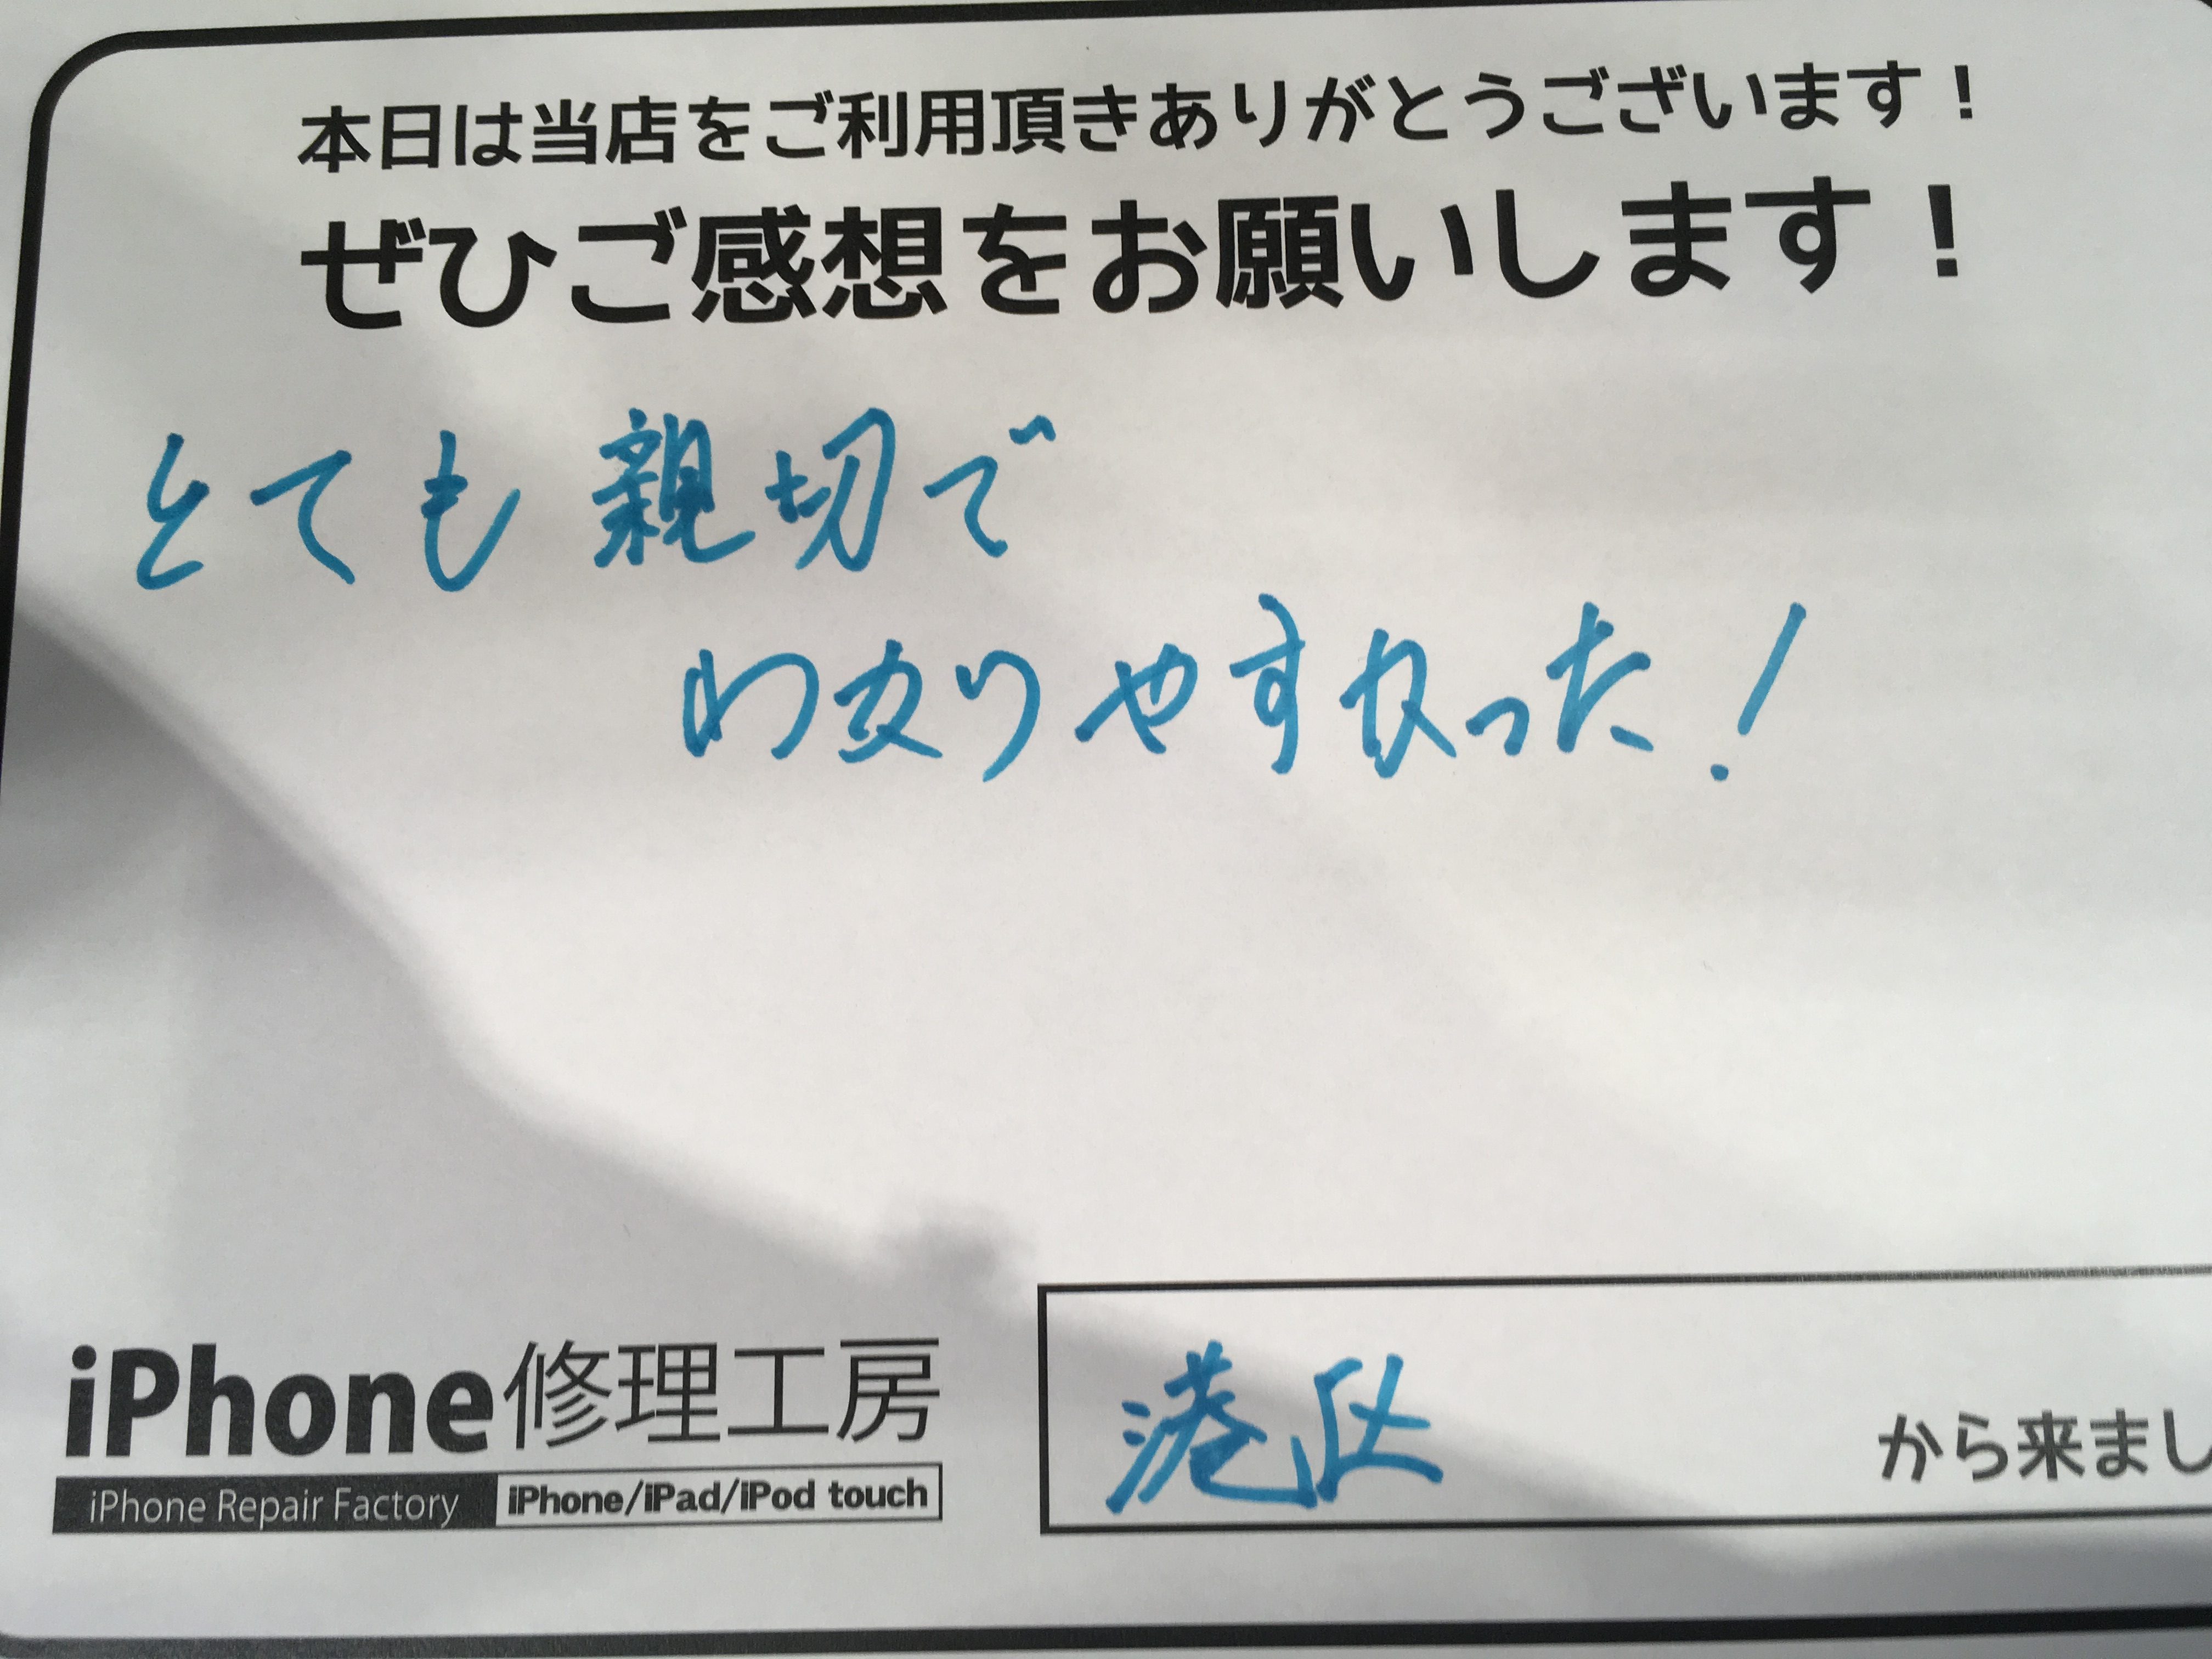 本日は当店をご利用頂きありがとうございます！
ぜひご感想をお願いします！
とても親切で
わかりやすかった！
iPhone修理工房
iPhone Repair Factory iPhone/iPad/iPod touch
港区 から来まし